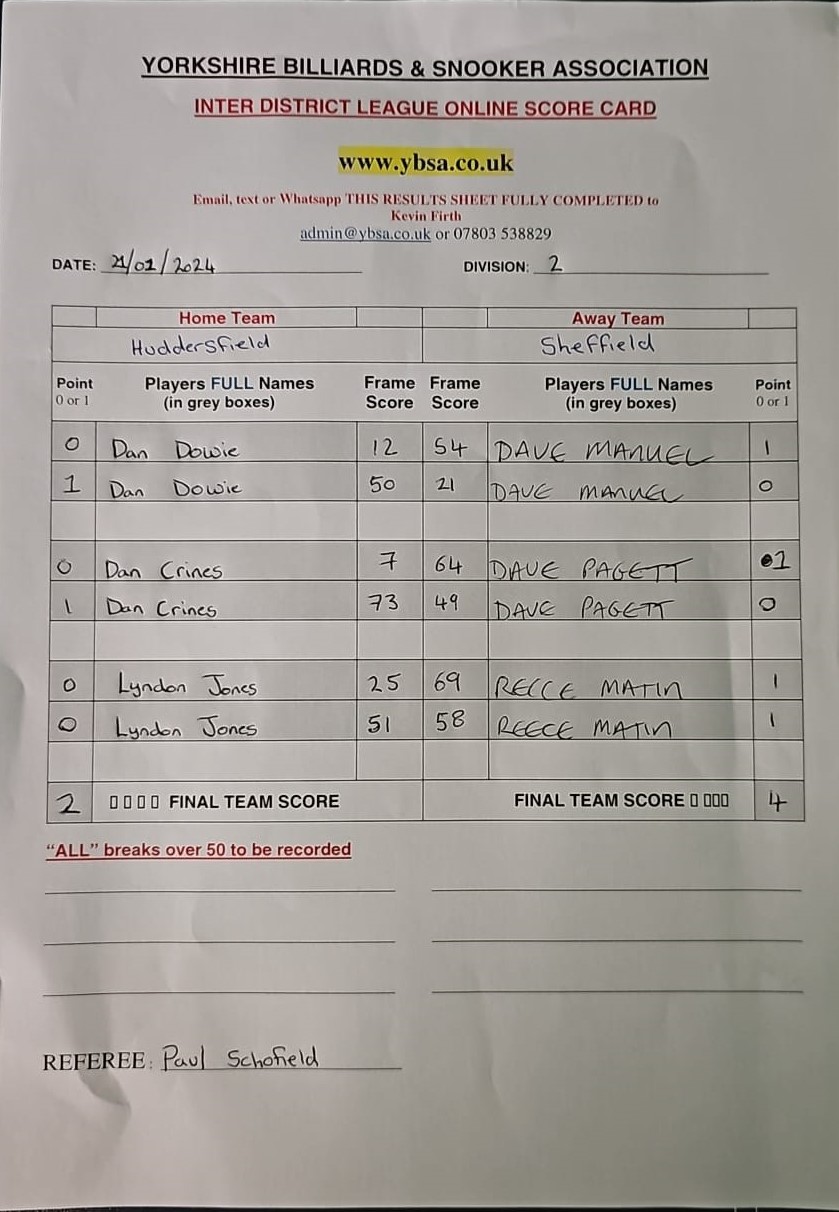 YORKSHIRE BILLIARDS & SNOOKER ASSOCIATION
INTER DISTRICT LEAGUE ONLINE SCORE CARD
www.ybsa.co.uk
Email, text or Whatsapp THIS RESULTS SHEET FULLY COMPLETED to
Kevin Firth
admin@ybsa.co.uk or 07803 538829
DATE: 21/01/2024 DIVISION: 2
Home Team Away Team
Huddersfield Sheffield
Point Players FULL Names Frame Frame Players FULL Names Point
0 or 1 (in grey boxes) Score Score (in grey boxes) 0 or 1
0 Dan Dowie 12 54 DAVE MANUEL 1
1 Dan Dowie 50 21 DAVE MANUEL 0
0 Dan Crines 7 64 DAVE PAGETT 1
1 Dan Crines 73 49 DAVE PAGETT 0
0 Lyndon Jones 25 69 REECE MATIN 1
0 Lyndon Jones 51 58 REECE MATIN 1
2 FINAL TEAM SCORE FINAL TEAM SCORE 4
"ALL" breaks over 50 to be recorded
REFEREE: Paul Schofield